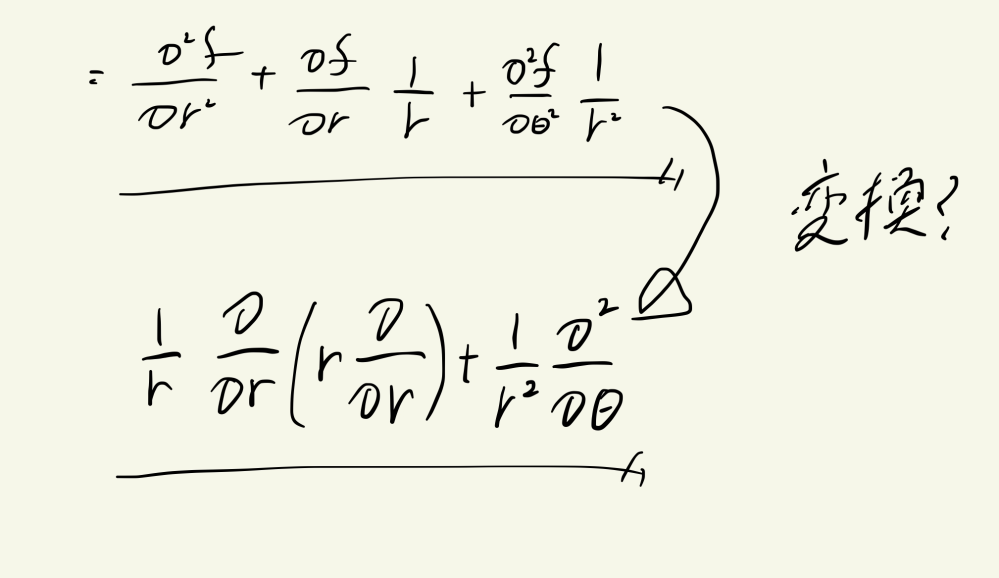 = ∂²f/∂r² + ∂f/∂r 1/r + ∂²f/∂θ² 1/r²
变换?
1/r ∂/∂r (r ∂/∂r) + 1/r² ∂²/∂θ